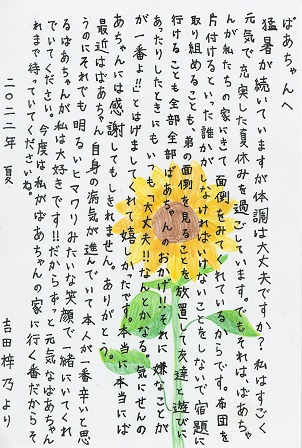 ばあちゃんへ
猛暑が続いていますが体調は大丈夫ですか?私はすごく
元気で充実した夏休みを過ごしています。でもそれは、ばあちゃ
んが私たちの家にきて面倒をみてくれているからです。布団を
片付けるといった誰かがしなければいけないことをしないで宿題
取り組めることも、弟の面倒を見ることを放置して友達と遊びに
行けることも全部全部ばあちゃんのおかげ!!それに嫌なことが
あったりしたときにも、いつも「大丈夫!!なんとかなる。気にせんの
が一番よ!!」とはげましてくれて嬉しかったです。本当に本当にば
あちゃんには感謝してもしきれません。ありがとう。
最近はばあちゃん自身の病気が進んでいて本人が一番辛いと思
うのにそれでも明るいヒマワリみたいな笑顔で一緒にいてくれ
るばあちゃんが私は大好きです!!だからずっと元気なばあちゃん
でいてください。今度は私がばあちゃんの家に行く番だからそ
れまで待っていてくださいね。
二〇二二年 夏
吉田梓乃より